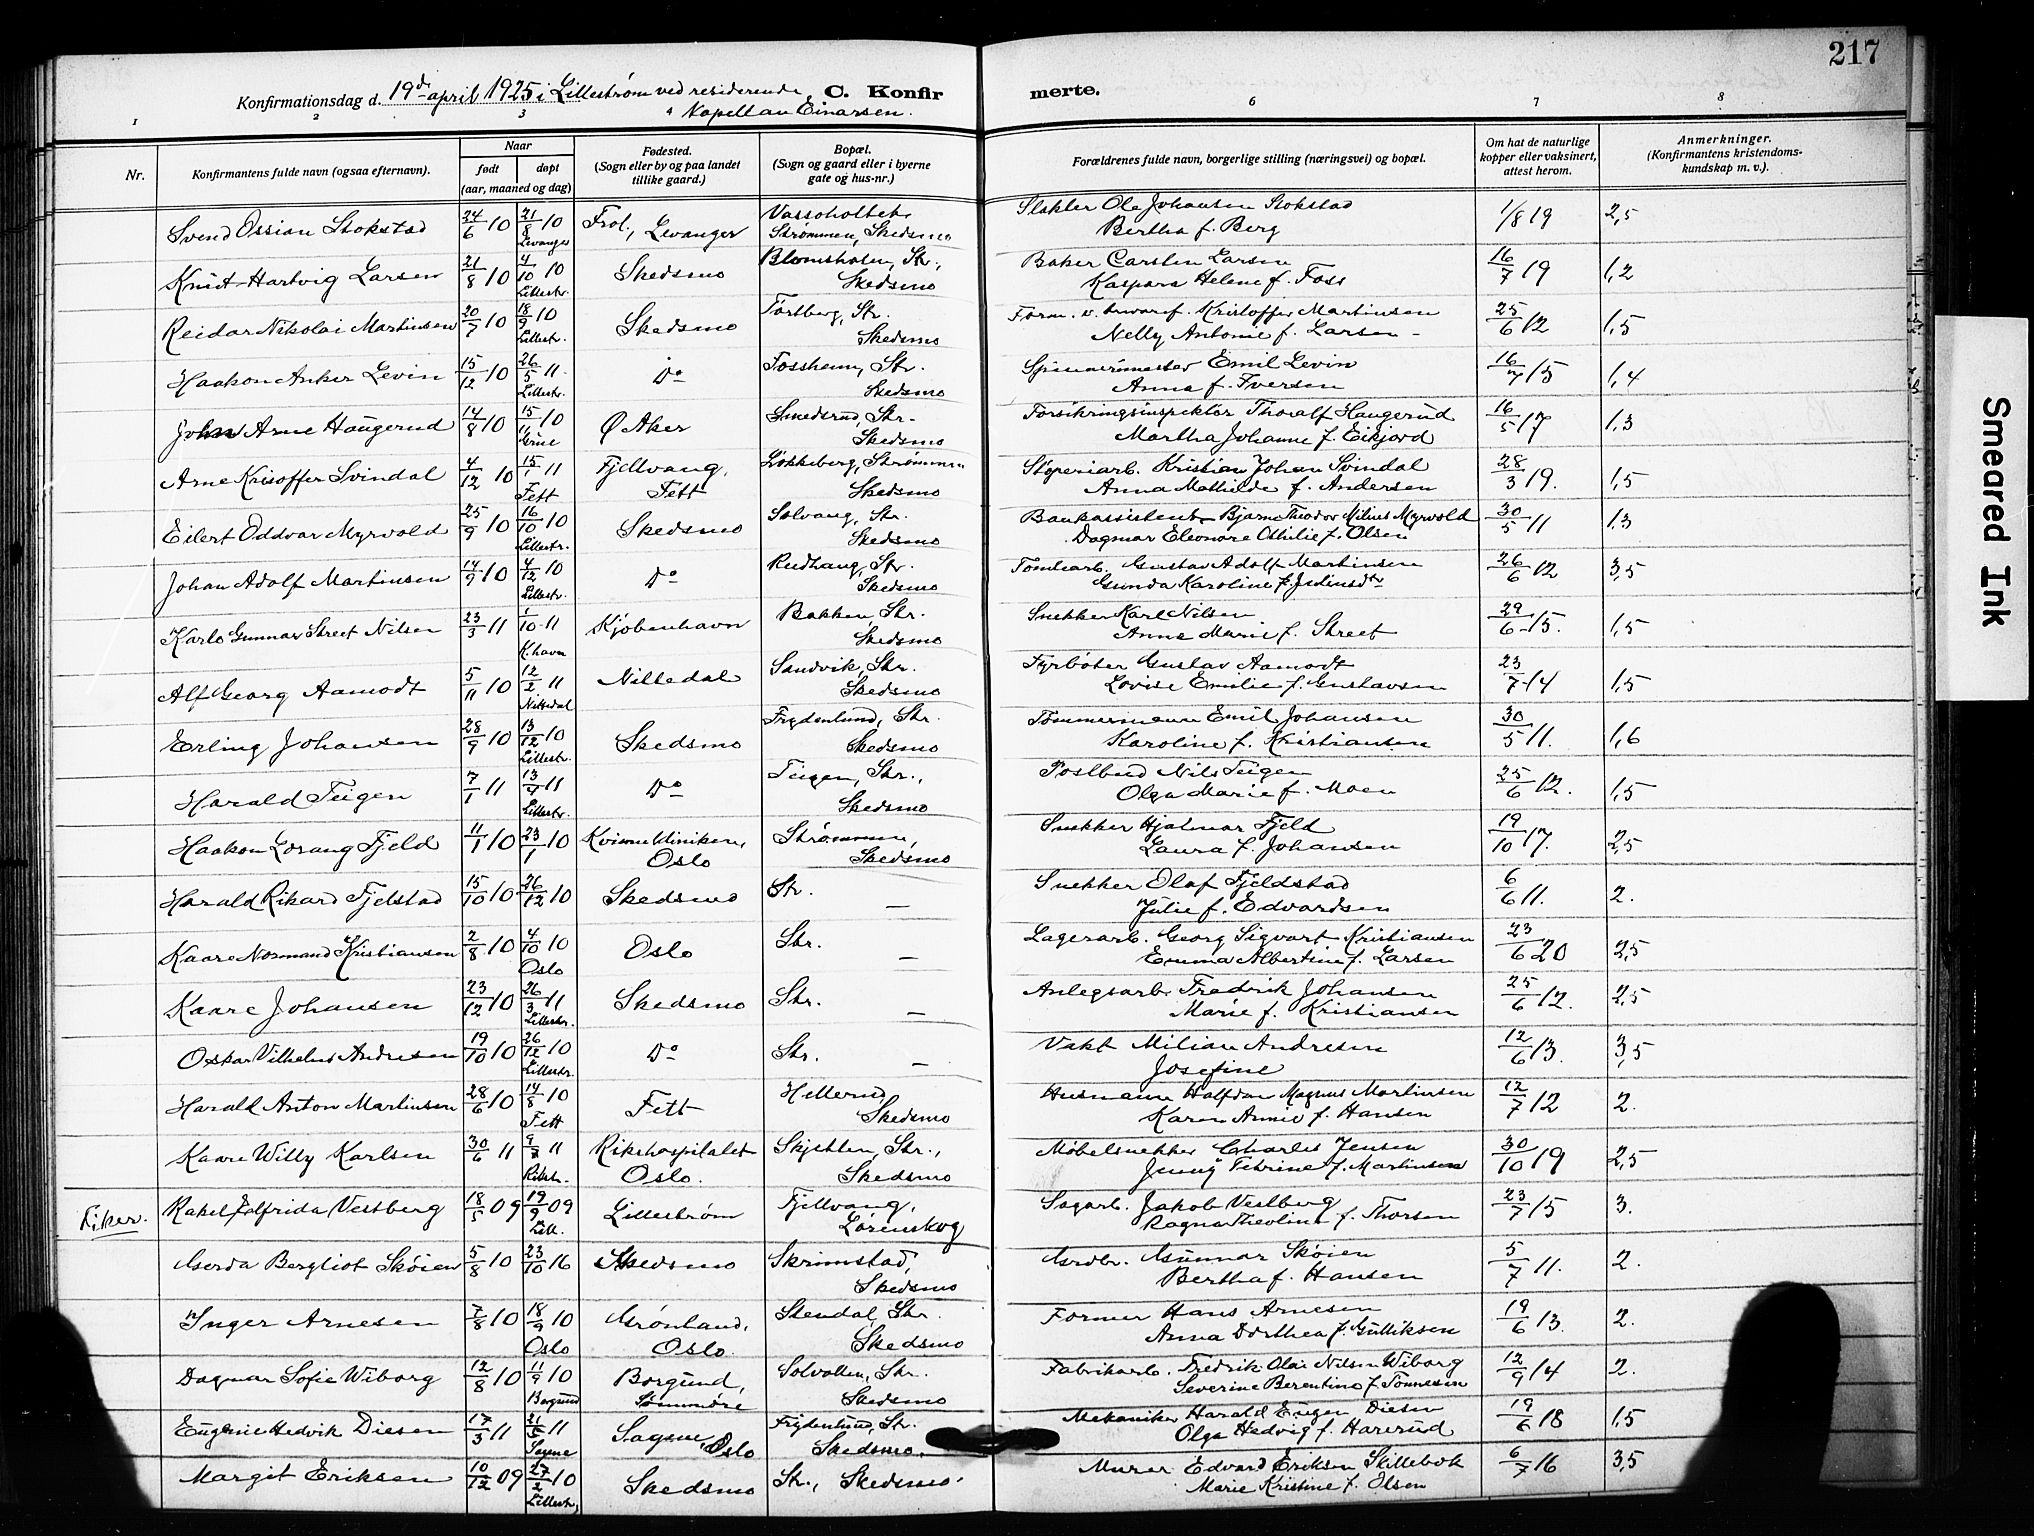 217
Konfirmationsdag d. 19de april 1925 i Lillestrøm ved residerende C. Konfir merte.
Kapellan Einarsen.
1 2 3 4 6 7 8
Nr. Konfirmantens fulde navn (ogsaa efternavn). Naar født døpt (aar, maaned og dag) Fødested. (Sogn eller by og paa landet tillike gaard.) Bopæl. (Sogn og gaard eller i byerne gate og hus-nr.) Forældrenes fulde navn, borgerlige stilling (næringsvei) og bopæl. Om hat de naturlige kopper eller vaksinert, attest herom. Anmerkninger. (Konfirmantens kristendoms-kundskap m. v.).
Svend Ossian Stokstad 24/6 10 21/8 10 Levanger Frol, Levanger Strømmen, Skedsmo Slakter Ole Johansen Stokstad Bertha f. Berg 1/8 19 2,5
Knut Hartvig Larsen 21/8 10 4/10 10 Lillestr. Skedsmo Blomsholm, Str., Skedsmo Baker Carsten Larsen Kaspara Helene f. Foss 16/7 19 1,2
Reidar Nikolai Martinsen 20/7 10 18/9 10 Lillestr. Skedsmo Torsberg, Str. Skedsmo Form. v. Kristoffer Martinsen Nelly Antonie f. Larsen 25/6 12 1,5
Haakon Anker Levin 15/12 10 26/5 11 Lillestr. Do Fossheim, Str. Skedsmo Spinnerimester Emil Levin Anna f. Iversen 16/7 15 1,4
John Arne Haugerud 14/8 10 15/11 10 Ø Aker Smedsrud, Str. Skedsmo Forsikringsinspektør Thoralf Haugerud Martha Johanne f. Eikjord 16/5 17 1,3
Arne Krisoffer Svindal 4/12 10 15/1 11 Fett Fjellvang, Fett Løkkeberg, Strømmen Skedsmo Støperiarb. Kristian Johan Svindal Anna Mathilde f. Andersen 28/3 19. 1,5
Eilert Oddvar Myrvold 25/9 10 16/10 10 Lillestr. Skedsmo Solvang, Str. Skedsmo Bankassistent Bjarne Theodor Milius Myrvold Dagmar Eleonore Othilie f. Olsen 30/5 11 1,3
Johan Adolf Martinsen 14/9 10 4/12 10 Lillestr. Do Rudhaug, Str. Skedsmo Tomtearb. Gustav Adolf Martinsen Gunda Karoline f. Julinsdtr 26/6 12 3,5
Karlo Gunnar Street Nilsen 23/3 11 1/10 11 K.havn Kjøbenhavn Bakken, Str. Skedsmo Snekker Karl Nilsen Anna Marie f. Street 29/6 15. 1,5
Alf Georg Aamodt 5/11 10 12/2 11 Nittedal Nittedal Sandvik, Str. Skedsmo Fyrbøter Gustav Aamodt Lovise Emilie f. Gustavsen 23/7 14 1,5
Erling Johansen 28/9 10 13/12 10 Lillestr. Skedsmo Frydenlund, Str. Skedsmo Tømmermann Emil Johansen Karoline f. Kristiansen 30/5 11. 1,6
Harald Teigen 7/1 11 13/4 11 Lillestr. Do Teigen, Str., Skedsmo Postbud Nils Teigen Olga Marie f. Moen 25/6 12. 1,5
Haakon Lorang Fjeld 11/1 10 23/1 10 Kvinneklinikken, Oslo Strømmen, Skedsmo Snekker Hjalmar Fjeld Laura f. Johansen 19/10 17. 2,5
Harald Rikard Fjelstad 15/10 10 26/12 10 Skedsmo Str. — Snekker Olaf Fjeldstad Julie f. Edvardsen 6/6 11. 2.
Kaare Normand Kristiansen 2/8 10 4/10 10 Oslo Oslo Str. — Lagerarb. Georg Sigvart Kristiansen Emma Albertine f. Larsen 23/6 20 2,5
Kaare Johansen 23/12 10 26/3 11 Lillestr. Skedsmo Str. — Anlegsarb. Fredrik Johansen Marie f. Kristiansen 25/6 12. 2,5
Oskar Vilhelm Andresen 19/10 10 26/12 10 Lillestr. Do Str. — Vakt Milian Andresen Josefine 12/6 13. 3,5
Harald Anton Martinsen 28/6 10 14/8 10 Fett Fett Hellerud Skedsmo Husmann Halfdan Magnus Martinsen Karen Annie f. Hansen 12/7 12 2.
Kaare Willy Karlsen 30/6 11 9/7 11 Riksh. Rikshospitalet Oslo. Skjetten, Str., Skedsmo Møbelsnekker Charles Jensen Jenny Petrine f. Martinsen 30/10 19 2,5
Piker. Rakel Elfrida Vestberg 18/5 09 19/9 09 Lill. Lillestrøm Fjellvang, Lørenskog Sagarb. Jakob Vestberg Ragna Theoline f. Thorsen 23/7 15 3.
Gerda Bergliot Skøien 5/8 10 23/10 16 Skedsmo Skrimstad, Skedsmo Grdbr. Gunnar Skøien Bertha f. Hansen 5/7 11. 2.
Inger Arnesen 7/8 10 18/9 10 Oslo Grønland, Oslo. Stendal, Str. Skedsmo Former Hans Arnesen Anna Dorthea f. Gulliksen 19/6 13. 2.
Dagmar Sofie Wiborg 12/8 10 11/9 10 Borgund Borgund, Sønnmøre Solvollen, Str. Skedsmo Fabrikarb. Fredrik Olai Nilsen Wiborg Severine Berentine f. Tønnesen 12/9 14 2.
Eugenie Hedvik Diesen 17/3 11 21/5 11 Sagene Sagene, Oslo Frydenlund, Str. Skedsmo. Mekaniker Harald Eugen Diesen Olga Hedvig f. Harerud 19/6 18 1,5
Margit Eriksen 10/12 09 27/2 10 Lillestr. Skedsmo Str., Skedsmo Murer Edvard Eriksen Skillebek Marie Kristine f. Olsen 6/7 16 3,5
Smeared Ink